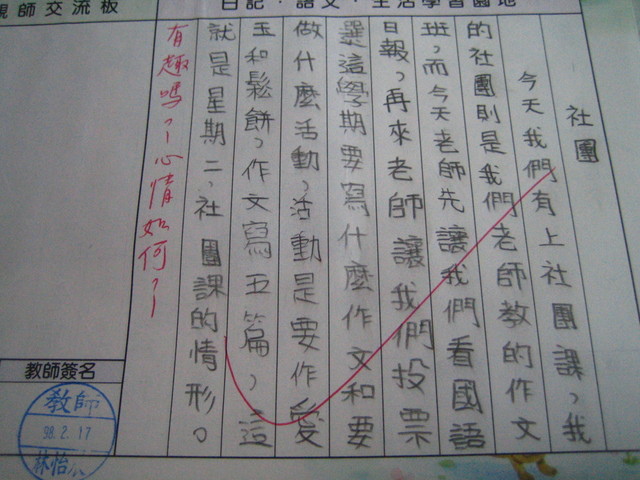 日記‧語文‧生活學習園地
社團
今天我們有上社團課，我
的社團則是我們老師教的作文
班，而今天老師先讓我們看國語
日報，再來老師讓我們投票
選這學期要寫什麼作文和要
做什麼活動，活動是要作愛
玉和鬆餅，作文寫五篇，這
就是星期二，社團課的情形。
有趣嗎？心情如何？
親師交流板
教師簽名
教師
98.2.17
林怡